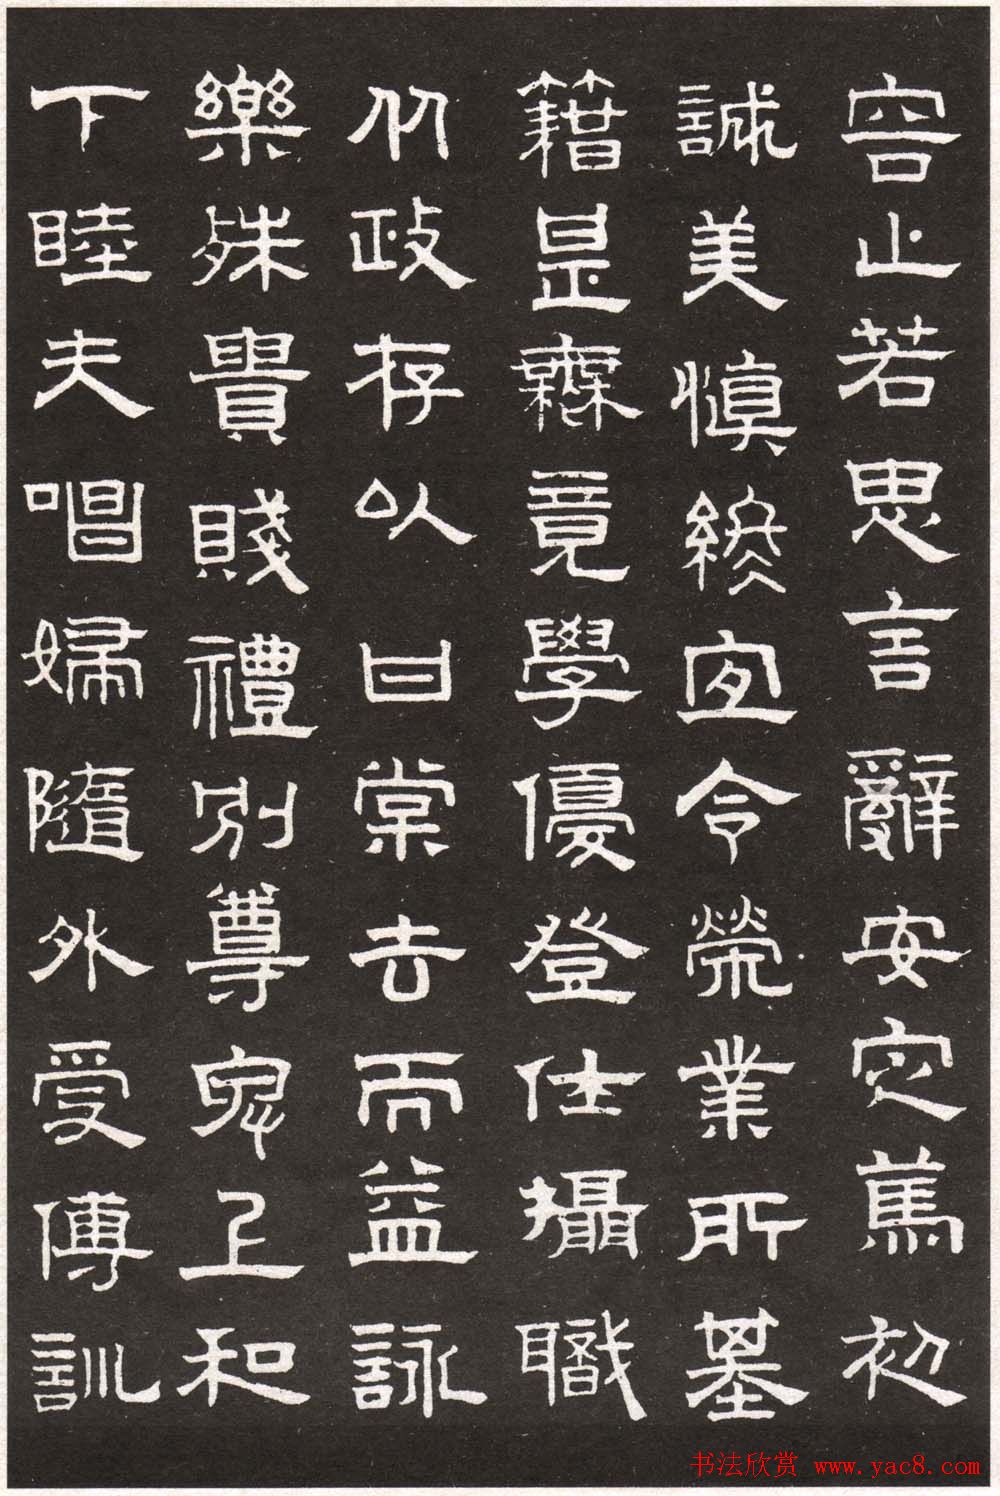 容止若思言辭安定篤初
誠美慎終宜令榮業所基
籍甚無竟學優登仕攝職
從政存以甘棠去而益詠
樂殊貴賤禮別尊卑上和
下睦夫唱婦隨外受傅訓
书法欣赏 www.yac8.com